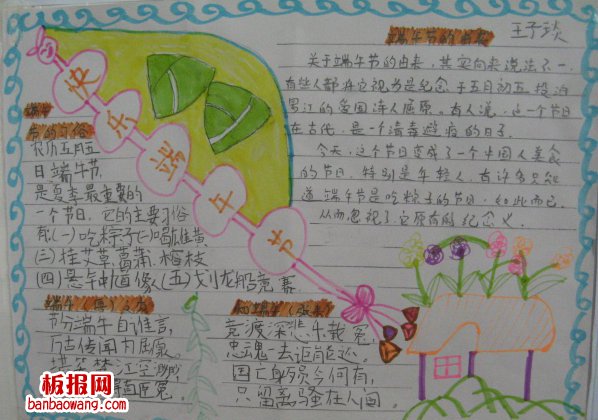 快乐端午节
端午节的由来
王予琰
关于端午节的由来，其实向来说法不一，
有些人都将它视为是纪念于五月初五投汨
罗江的爱国诗人屈原。有人说，这一个节日
在古代，是一个清毒避疫的日子。
今天，这个节日变成了一个中国人美食
的节日，特别是年轻人，有许多只知
道端午节是吃粽子的节日，如此而已，
从而忽视了它原有的纪念义。
端午
节的习俗
农历五月五
日端午节，
是夏季最重要的
一个节日，它的主要习俗
有(一)吃粽子(二)喝雄黄
(三)挂艾草菖蒲、梅枝
(四)悬钟馗像(五)划龙船竞赛
端午
节分端午自谁言，
万古传闻为屈原。
楚江空
臣冤
和端午(张耒)
竞渡深悲千载冤，
忠魂一去讵能还。
国亡身殒今何有，
只留离骚在人间。
板报网
banbaowang.com